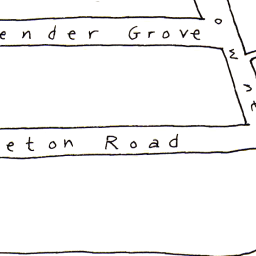 ender Grove
eton Road